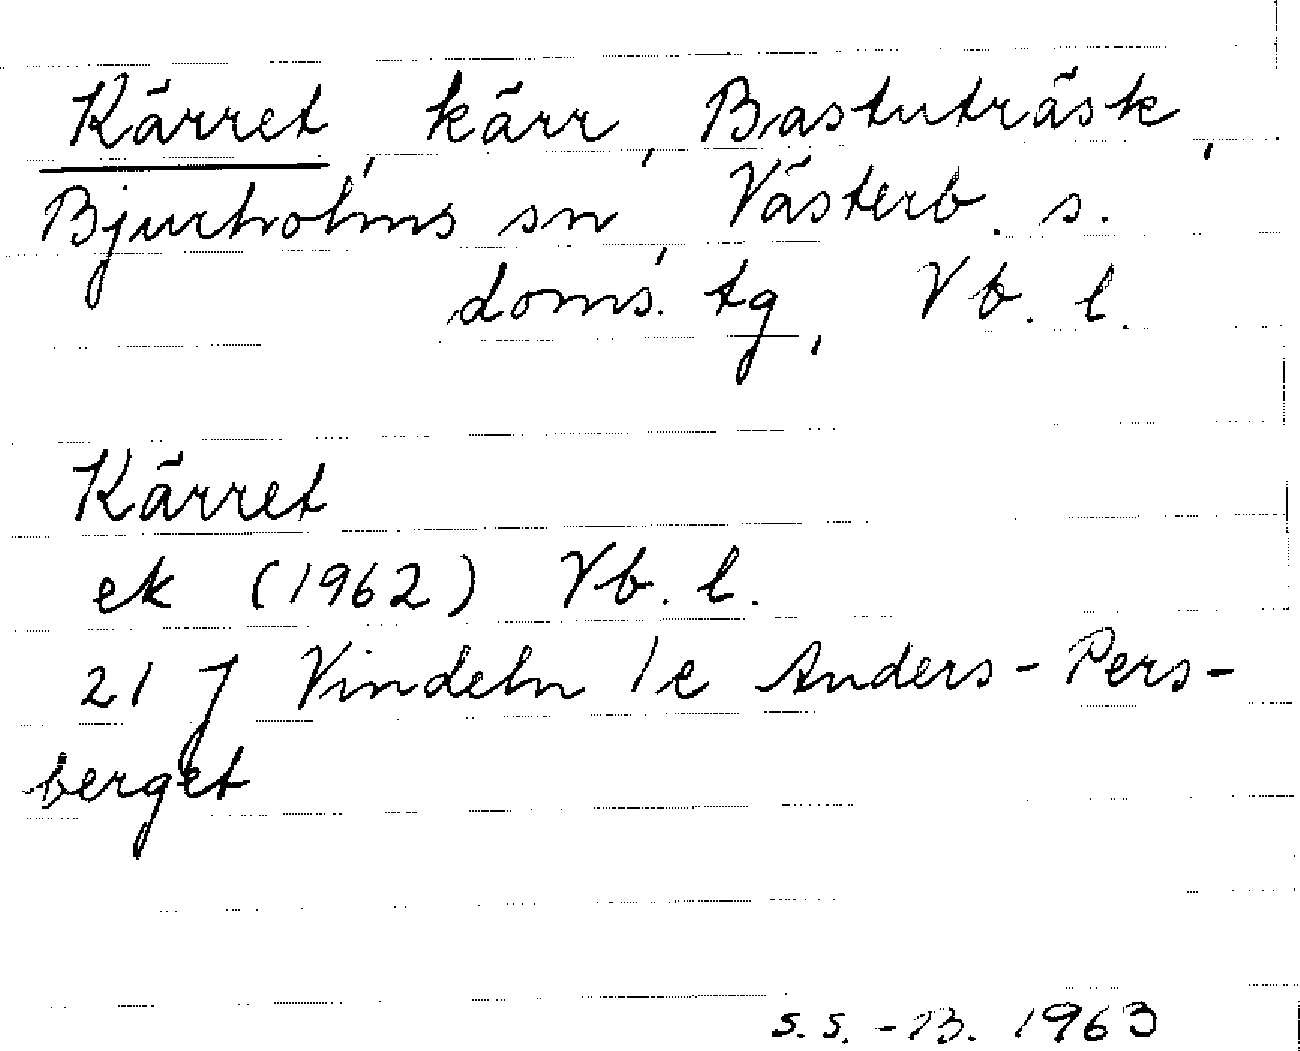 Kärret, kärr, Bastuträsk,
Bjurholms sn, Västerb. s.
doms. tg, Vb. l.
Kärret
ek (1962) Vb. l.
21 J Vindeln 1c Anders-Pers-
berget
S.S.-B. 1963